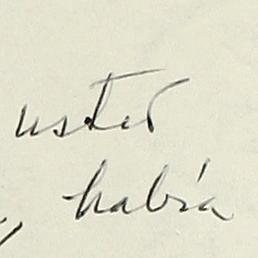 usted
había